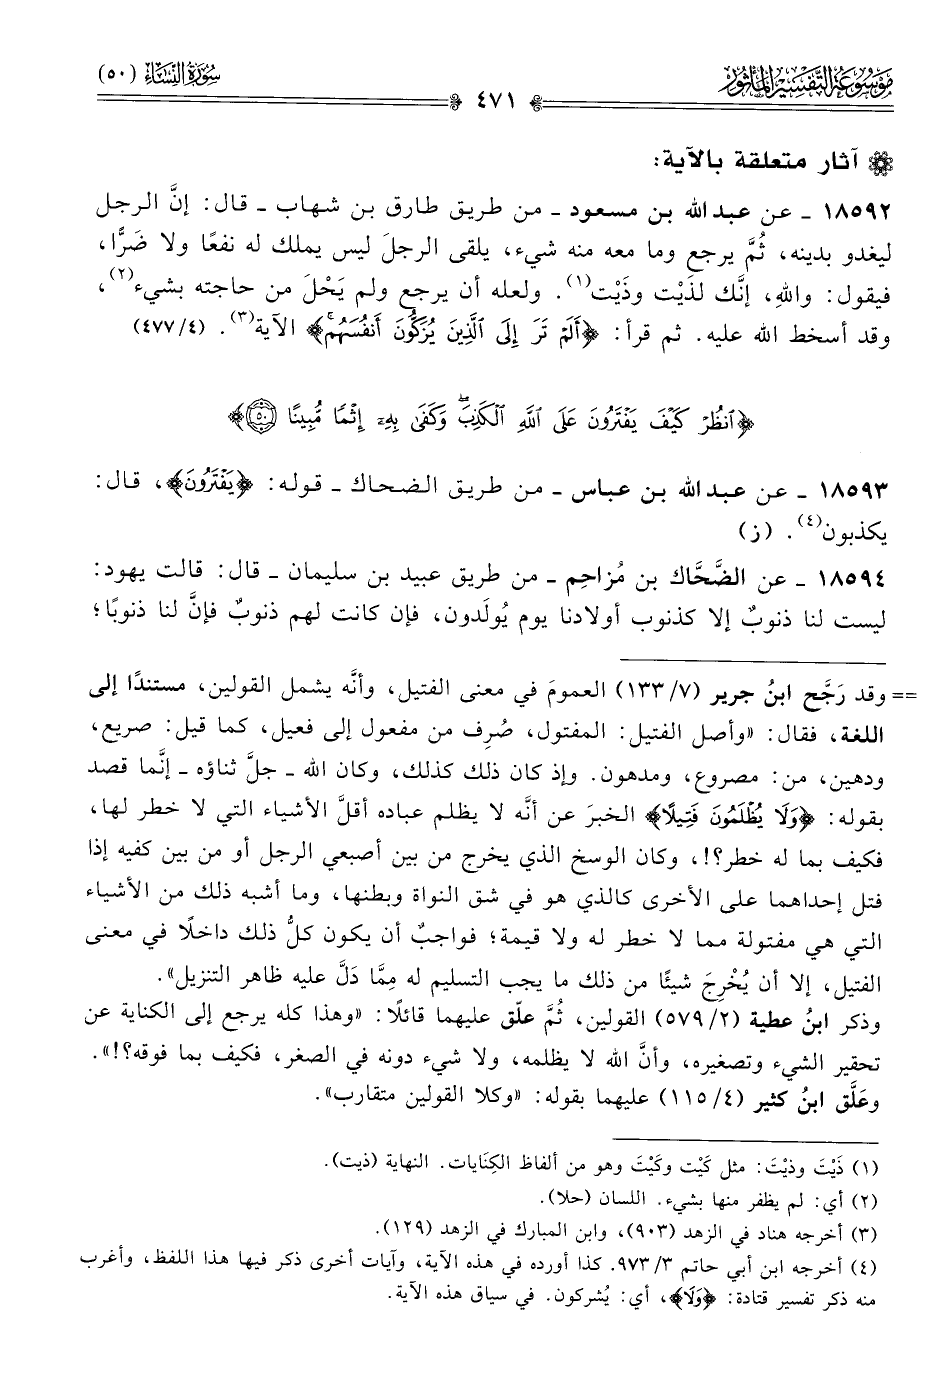 موسوعة التفسير المأثور
سورة النساء (٥٠)
٤٧١
آثار متعلقة بالآية:
١٨٥٩٢ ـ عن عبد الله بن مسعود ـ من طريق طارق بن شهاب ـ قال: إنَّ الرجل
ليغدو بدينه، ثُمَّ يرجع وما معه منه شيء، يلقى الرجلَ ليس يملك له نفعًا ولا ضَرًّا،
فيقول: والله، إنَّك لذَيْت وذَيْت(١). ولعله أن يرجع ولم يَحْلَ من حاجته بشيء(٢)،
وقد أسخط الله عليه. ثم قرأ: ﴿أَلَمْ تَرَ إِلَى ٱلَّذِينَ يُزَكُّونَ أَنفُسَهُمْ﴾ الآية(٣). (٤/ ٤٧٧)
﴿ٱنظُرْ كَيْفَ يَفْتَرُونَ عَلَى ٱللَّهِ ٱلْكَذِبَۖ وَكَفَىٰ بِهِۦٓ إِثْمًا مُّبِينًا ۝٥٠﴾
١٨٥٩٣ ـ عن عبد الله بن عباس ـ من طريق الضحاك ـ قوله: ﴿يَفْتَرُونَ﴾، قال:
يكذبون(٤). (ز)
١٨٥٩٤ ـ عن الضَّحَّاك بن مُزاحِم ـ من طريق عبيد بن سليمان ـ قال: قالت يهود:
ليست لنا ذنوبٌ إلا كذنوب أولادنا يوم يُولَدون، فإن كانت لهم ذنوبٌ فإنَّ لنا ذنوبًا؛
== وقد رَجَّح ابنُ جرير (٧/ ١٣٣) العمومَ في معنى الفتيل، وأنَّه يشمل القولين، مستندًا إلى
اللغة، فقال: «وأصل الفتيل: المفتول، صُرِف من مفعول إلى فعيل، كما قيل: صريع،
ودهين، من: مصروع، ومدهون. وإذ كان ذلك كذلك، وكان الله ـ جلَّ ثناؤه ـ إنَّما قصد
بقوله: ﴿وَلَا يُظْلَمُونَ فَتِيلًا﴾ الخبرَ عن أنَّه لا يظلم عباده أقلَّ الأشياء التي لا خطر لها،
فكيف بما له خطر؟!، وكان الوسخ الذي يخرج من بين أصبعي الرجل أو من بين كفيه إذا
فتل إحداهما على الأخرى كالذي هو في شق النواة وبطنها، وما أشبه ذلك من الأشياء
التي هي مفتولة مما لا خطر له ولا قيمة؛ فواجبٌ أن يكون كلُّ ذلك داخلًا في معنى
الفتيل، إلا أن يُخْرِجَ شيئًا من ذلك ما يجب التسليم له مِمَّا دَلَّ عليه ظاهر التنزيل».
وذكر ابنُ عطية (٢/ ٥٧٩) القولين، ثُمَّ علّق عليهما قائلًا: «وهذا كله يرجع إلى الكناية عن
تحقير الشيء وتصغيره، وأنَّ الله لا يظلمه، ولا شيء دونه في الصغر، فكيف بما فوقه؟!».
وعَلَّق ابنُ كثير (٤/ ١١٥) عليهما بقوله: «وكلا القولين متقارب».
(١) ذَيْتَ وذيْتَ: مثل كَيْت وكَيْتَ وهو من ألفاظ الكِنَايات. النهاية (ذيت).
(٢) أي: لم يظفر منها بشيء. اللسان (حلا).
(٣) أخرجه هناد في الزهد (٩٠٣)، وابن المبارك في الزهد (١٢٩).
(٤) أخرجه ابن أبي حاتم ٣/ ٩٧٣. كذا أورده في هذه الآية، وآيات أخرى ذكر فيها هذا اللفظ، وأغرب
منه ذكر تفسير قتادة: ﴿وَلَا﴾، أي: يُشركون. في سياق هذه الآية.